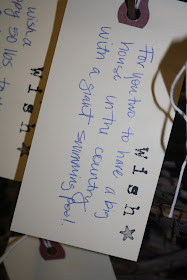 Wish
For you two to have a big
house in the country
with a giant swimming pool.
Wish
wish a
50 lbs